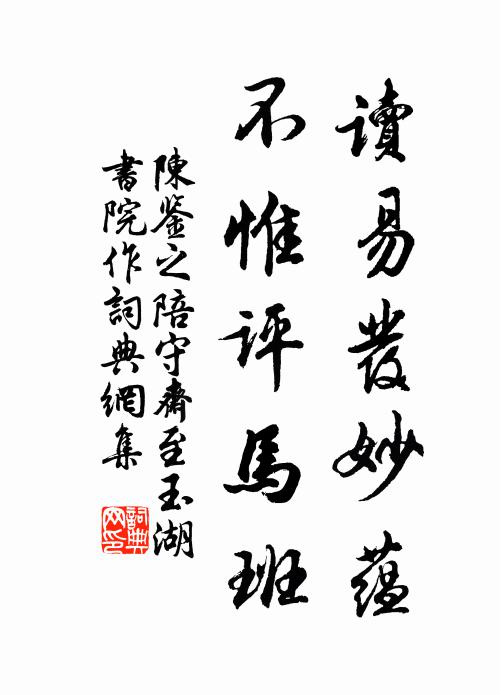 讀易發妙蘊
不惟評馬班
陳鑒之陪守齋至玉湖
書院作詞典網集
詞典
网印